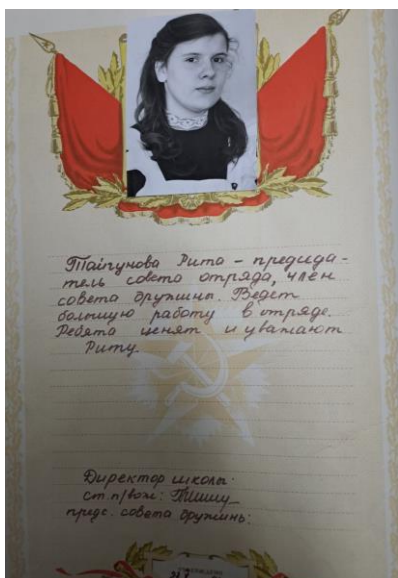 Тайгунова Рита - председа-
тель совета отряда, член
совета дружины. Ведет
большую работу в отряде.
Ребята ценят и уважают
Риту.
Директор школы:
ст. п/вож:
предс. совета дружины: